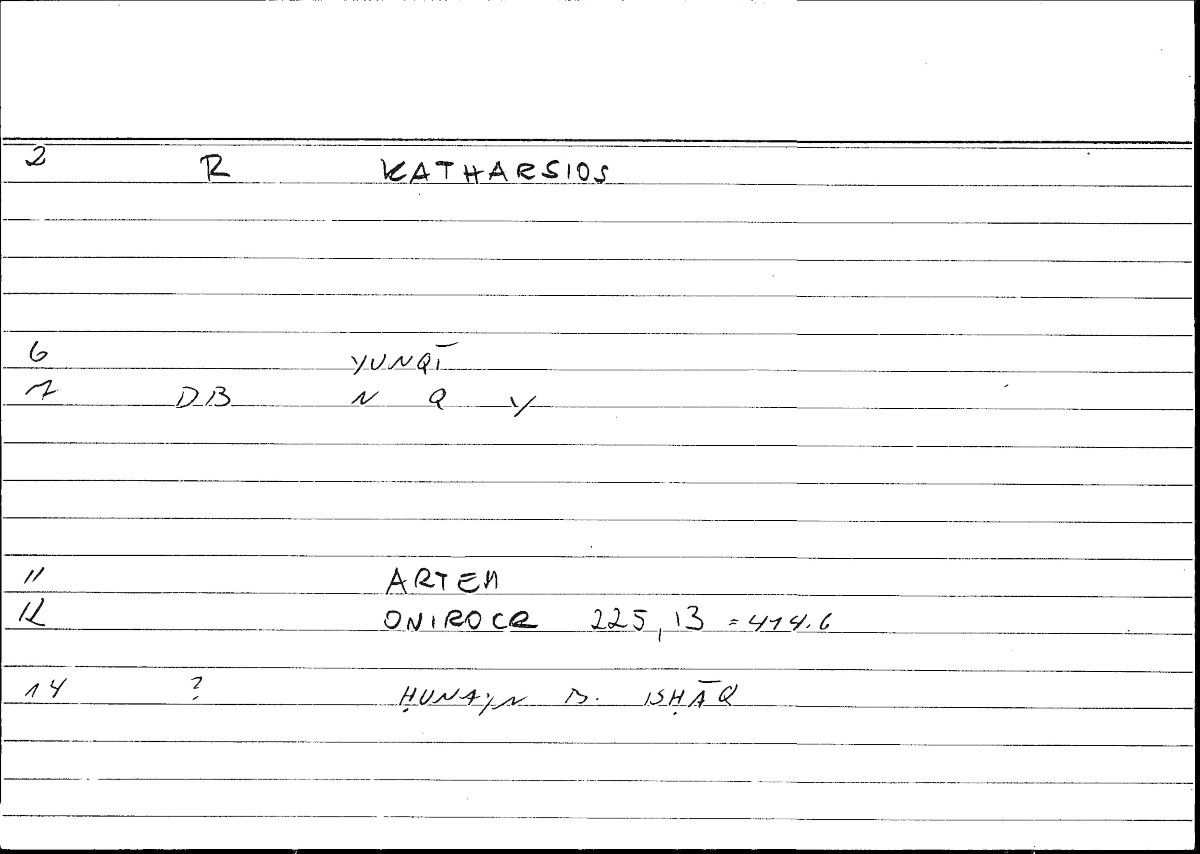 2 R KATHARSIOS
6 YUNQĪ
7 DB N Q Y
11 ARTEM
12 ONIROCR 225,13 = 414.6
14 ? ḤUNAYN B. ISḤĀQ